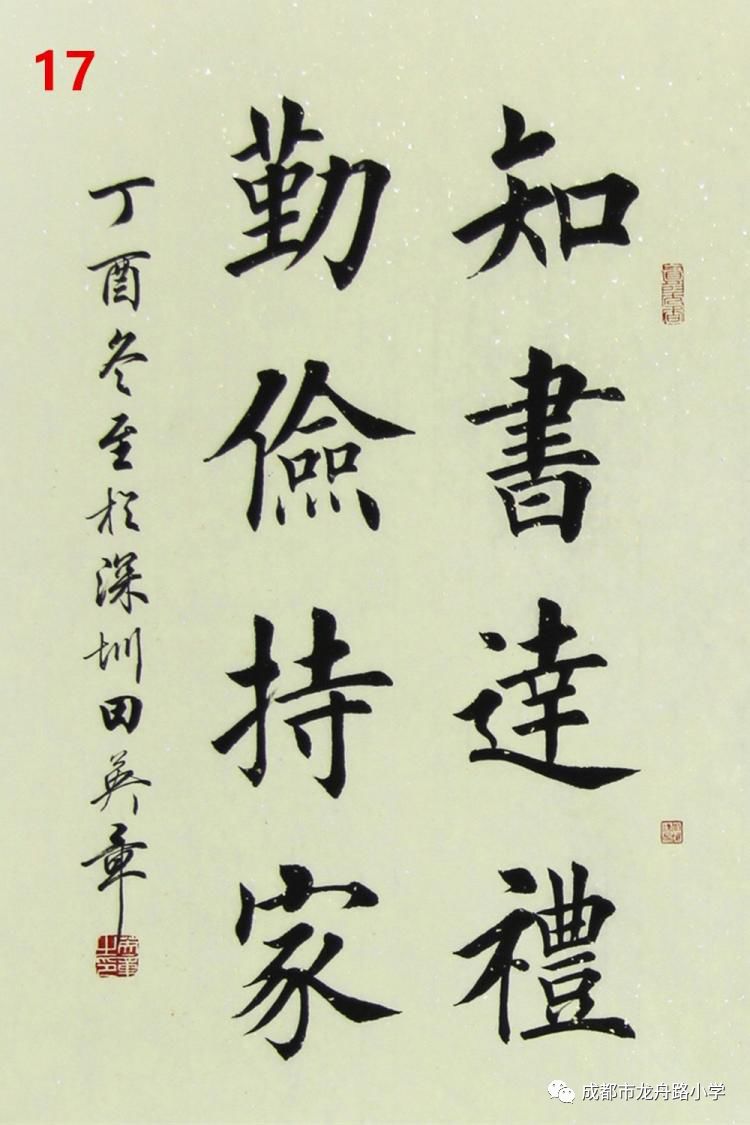 17
知書達禮
勤儉持家
丁酉冬至於深圳田英章
成都市龙舟路小学